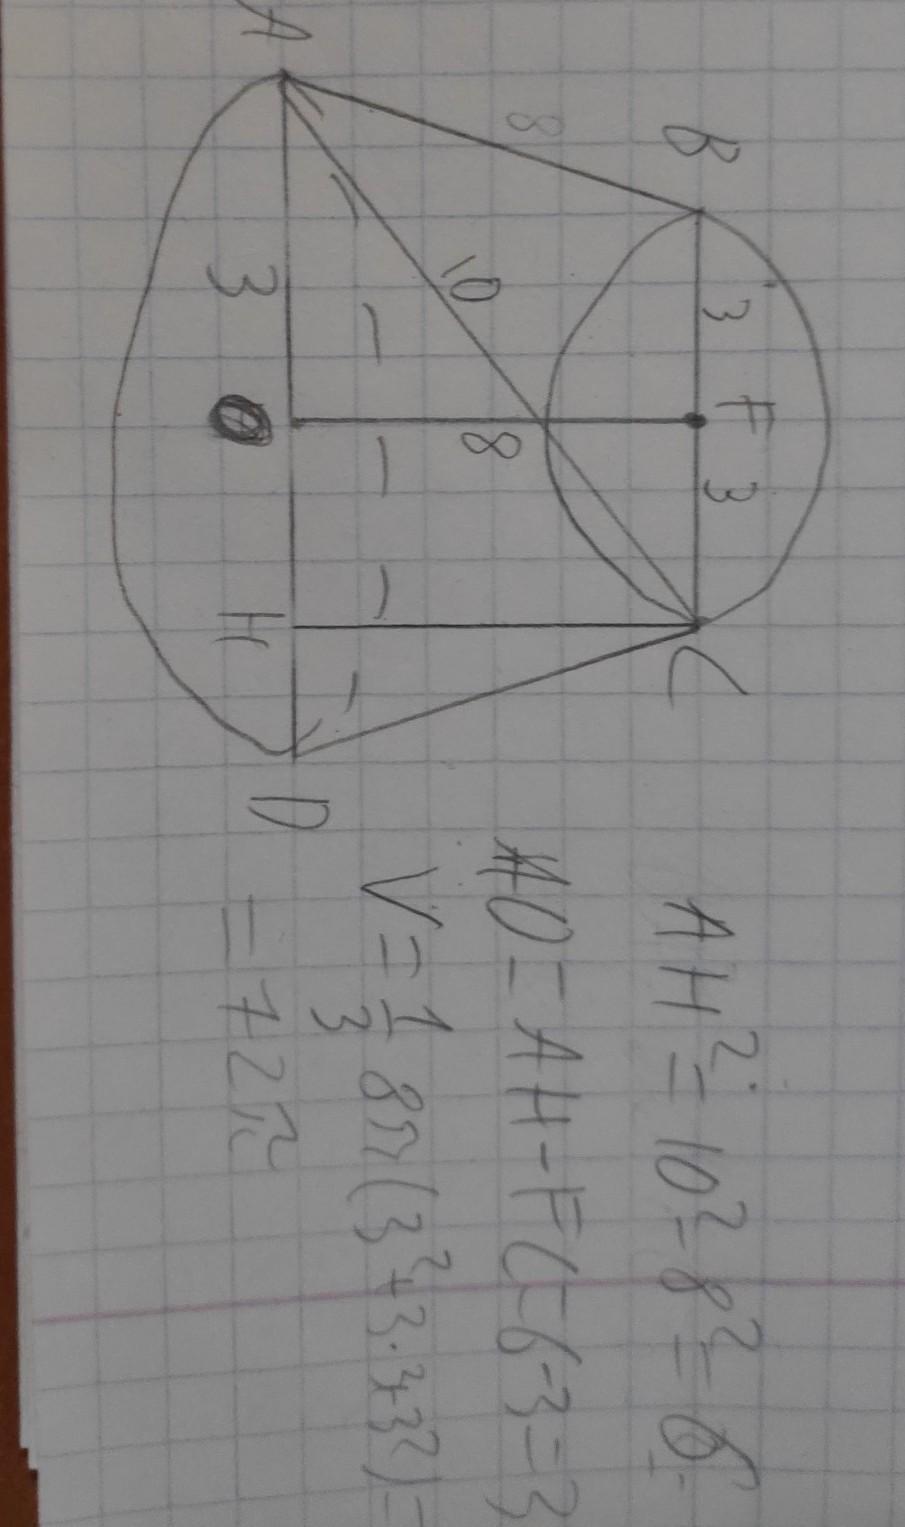 B 3 F 3 C
8
10
8
A 3 O H D
AH² = 10² - 8² = 6
AO = AH - FC = 6-3 = 3
V = 1/3 8π(3² + 3·3+3²) =
= 72π